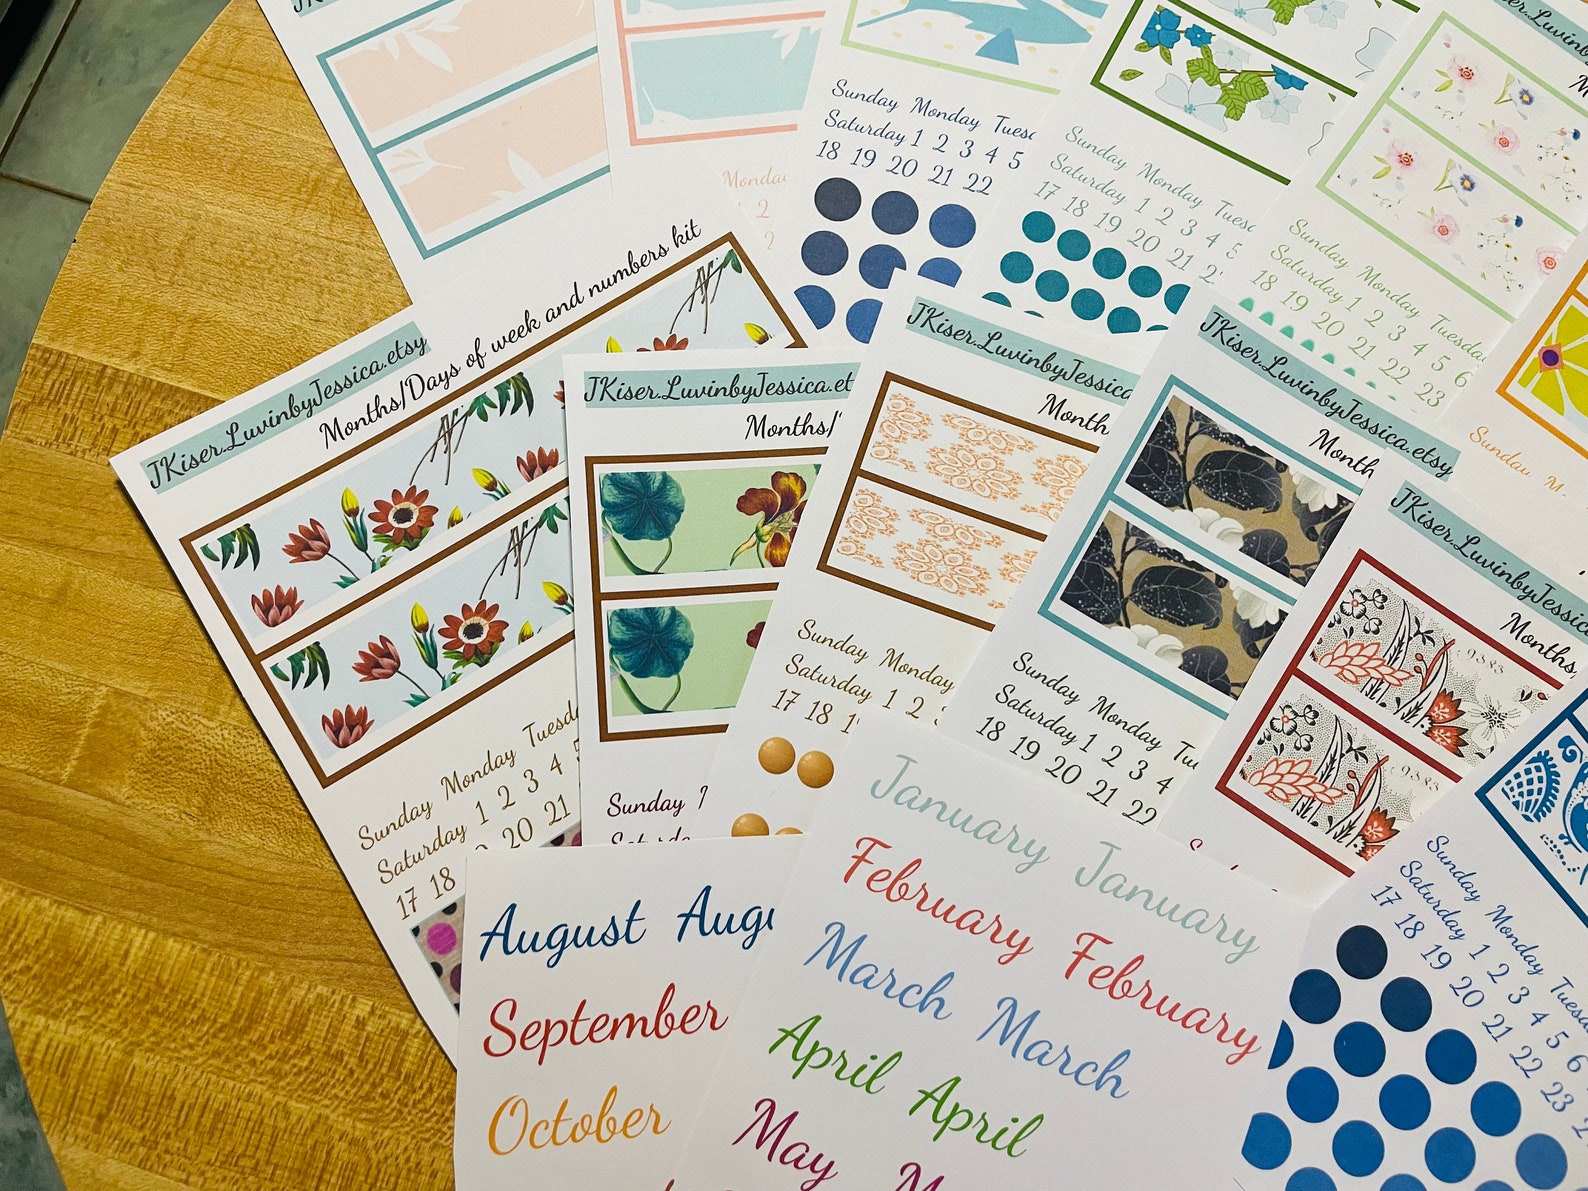 Sunday Monday
Saturday 1 2 3 4 5
18 19 20 21 22
Sunday Monday Tuesday
Saturday 1 2 3 4 5
17 18 19 20 21
Sunday Monday Tuesday
Saturday 1 2 3 4 5 6
18 19 20 21 22 23
Monday
JKiser.LuvinbyJessica.etsy
Months/Days of week and numbers kit
Sunday Monday
Saturday 1 2 3 4
17 18 20 21
JKiser.LuvinbyJessica.et
Months/
Sunday
JKiser.LuvinbyJessica.e
Month
Sunday Monday
Saturday 1 2
17 18
JKiser.LuvinbyJessica.etsy
Month
Sunday Monday
Saturday 1 2 3 4
18 19 20 21 22
JKiser.LuvinbyJessica
Months
9383
9383
Sunday Monday
Saturday 1 2 3 4 5 6
17 18 19 20 21 22 23
August Augu
September
October
January January
February February
March March
April April
May